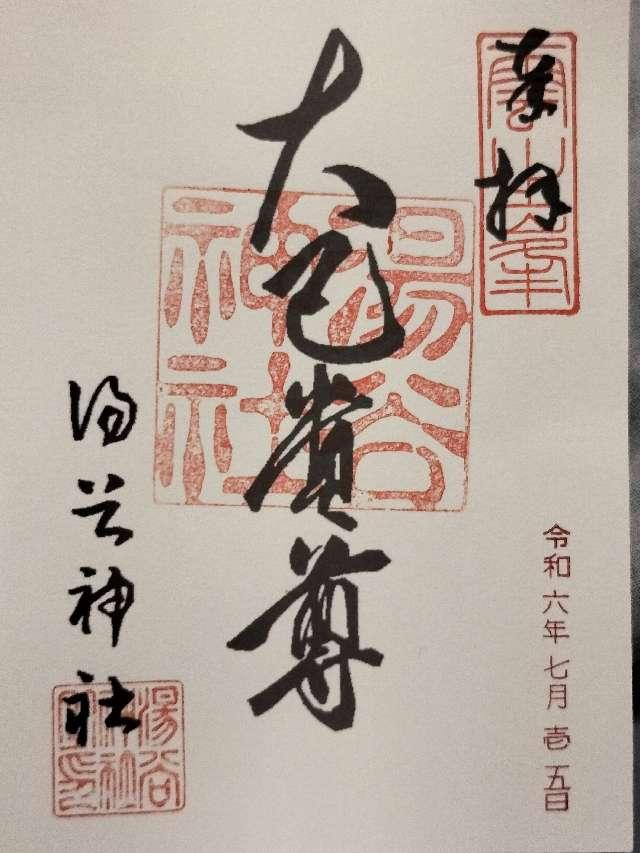 奉拝
大己貴尊
湯谷神社
湯谷神社
令和六年七月壱五日
湯谷神社